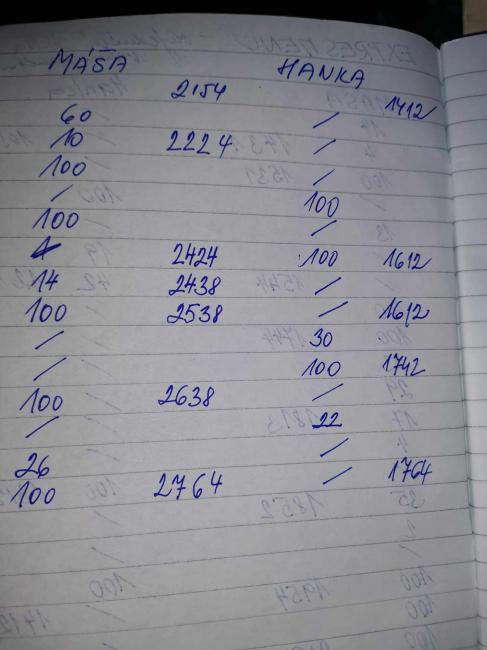 MÁŠA HANKA
2154 1412
60 /
10 2224 /
100 /
/ 100
100 /
/ 2424 100 1612
14 2438 /
100 2538 / 1612
/ 30
/ 100 1742
100 2638 /
/ 22
26 /
100 2764 / 1764